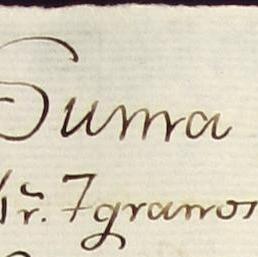 Suma
r. 7 granos